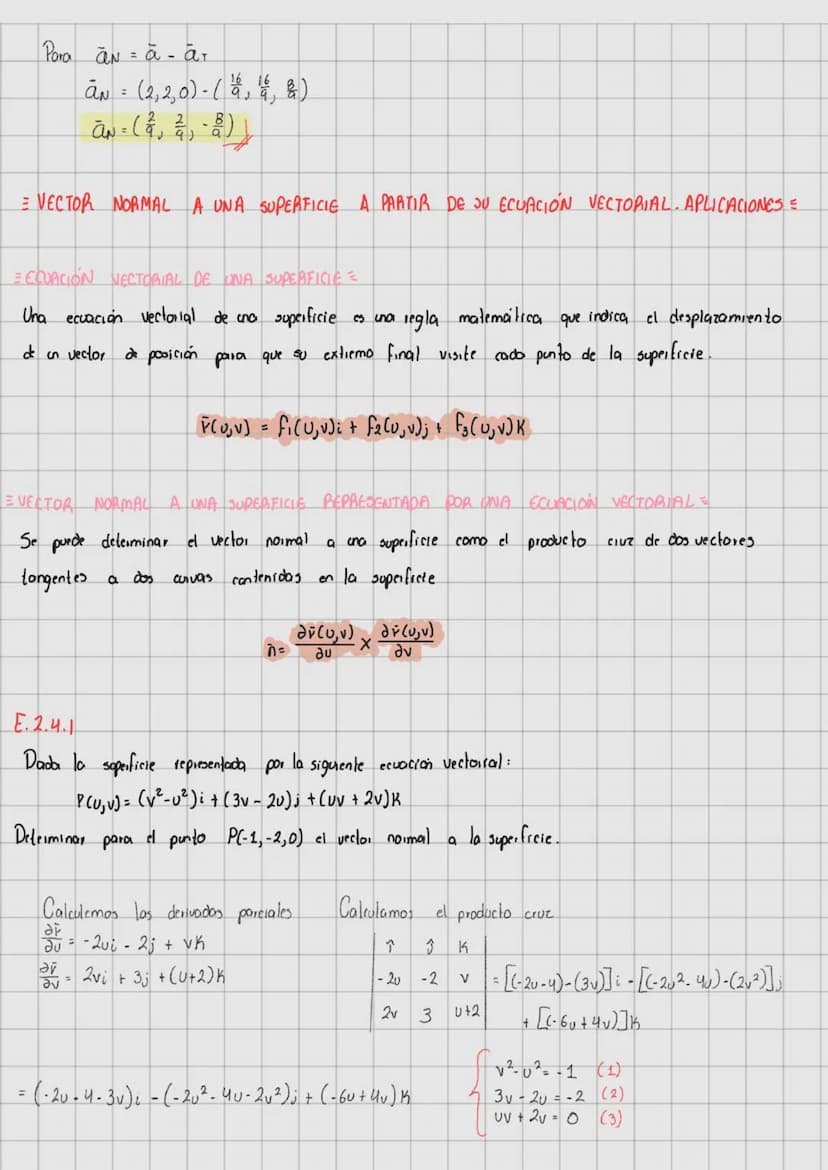 Para āN = ā - āT
āN = (2,2,0) - (16/9, 16/9, 8/9)
āN = (2/9, 2/9, -8/9)
≡ VECTOR NORMAL A UNA SUPERFICIE A PARTIR DE SU ECUACIÓN VECTORIAL. APLICACIONES ≡
≡ ECUACIÓN VECTORIAL DE UNA SUPERFICIE ≡
Una ecuación vectorial de una superficie es una regla matemática que indica el desplazamiento
de un vector de posición para que su extremo final visite cada punto de la superficie.
r̄(u,v) = f₁(u,v)i + f₂(u,v)j + f₃(u,v)K
≡ VECTOR NORMAL A UNA SUPERFICIE REPRESENTADA POR UNA ECUACIÓN VECTORIAL ≡
Se puede determinar el vector normal a una superficie como el producto cruz de dos vectores
tangentes a dos curvas contenidas en la superficie
n̄ = ∂r̄(u,v)/∂u × ∂r̄(u,v)/∂v
E.2.4.1
Dada la superficie representada por la siguiente ecuación vectorial:
P(u,v) = (v²-u²)i + (3v - 2u)j + (uv + 2v)K
Determinar para el punto P(-1,-2,0) el vector normal a la superficie.
Calculemos las derivadas parciales
∂r̄/∂u = -2ui - 2j + vK
∂r̄/∂v = 2vi + 3j + (u+2)K
Calculamos el producto cruz
| î ĵ K |
| -2u -2 v | = [(-2u-4)-(3v)]i - [(-2u²-4u)-(2v²)]j
| 2v 3 u+2 | + [(-6u+4v)]K
= (-2u-4-3v)i - (-2u²-4u-2v²)j + (-6u+4v)K
v²-u² = -1 (1)
3v - 2u = -2 (2)
uv + 2v = 0 (3)